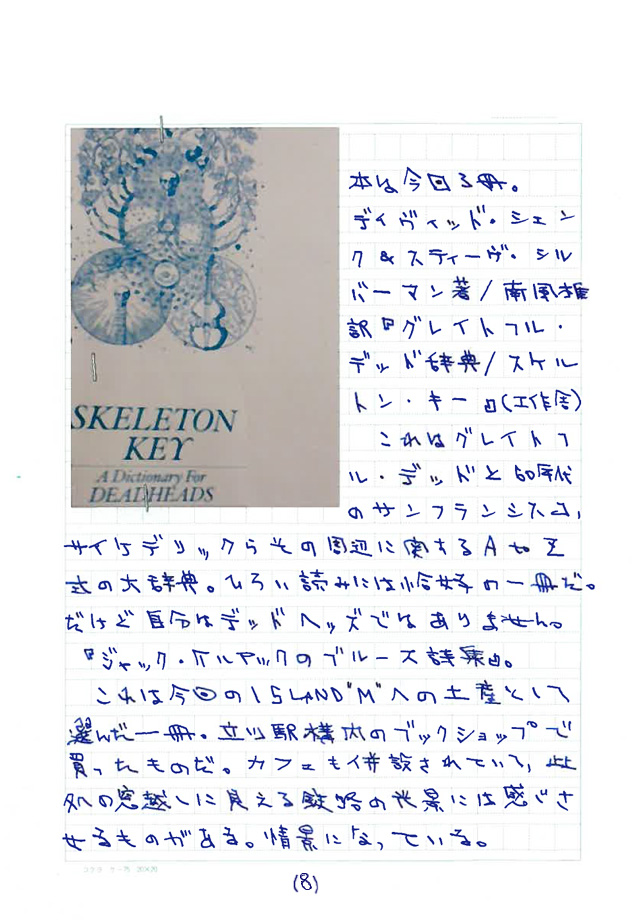 SKELETON
KEY
A Dictionary For
DEADHEADS
本は今回3冊。
デイヴィッド・シェン
ク&スティーヴ・シル
バーマン著/南風椎
訳『グレイトフル・
デッド辞典/スケル
トン・キー』(工作舎)
これはグレイトフ
ル・デッドと60年代
のサンフランシスコ、
サイケデリックらその周辺に関するA to Z
式の大辞典。ひろい読みには恰好の一冊だ。
だけど自分はデッドヘッズではありません。
『ジャック・ケルアックのブルース詩集』。
これは今回のISLAND"M"への土産として
選んだ一冊。立川駅構内のブックショップで
買ったものだ。カフェも併設されていて、此
処の窓越しに見える線路の光景には感じさ
せるものがある。情景になっている。
コクヨ ケー75 20×20
(8)